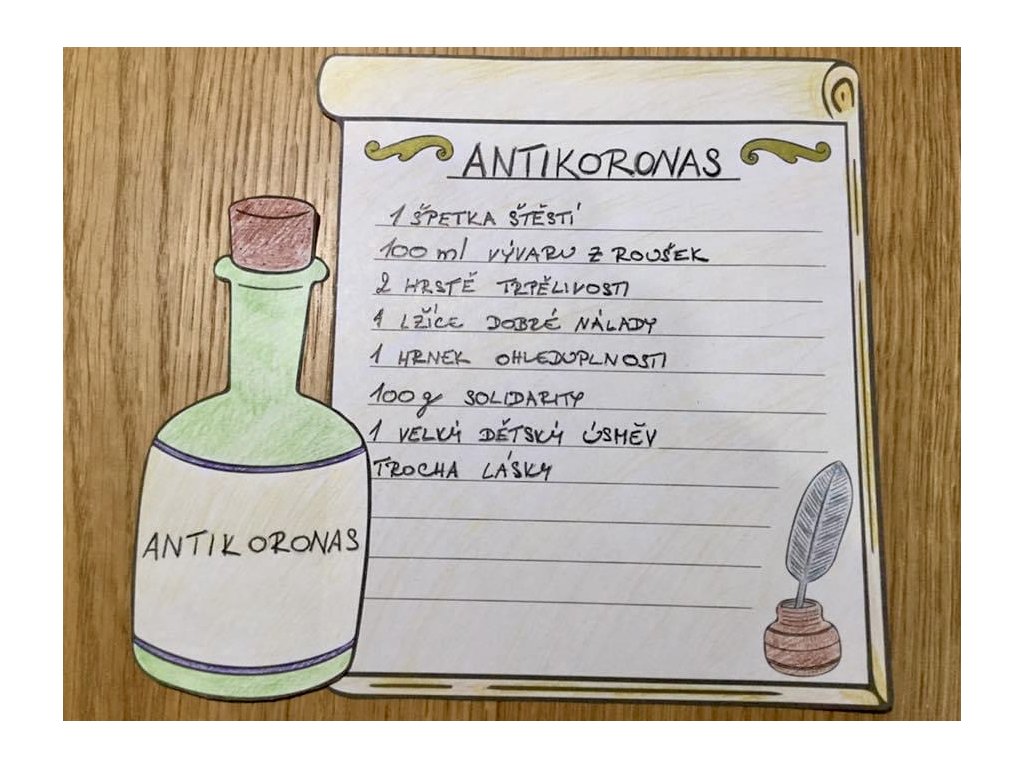 ANTIKORONAS
1 ŠPETKA ŠTĚSTÍ
100 ml VÝVARU Z ROUŠEK
2 HRSTĚ TRPĚLIVOSTI
1 LŽÍCE DOBRÉ NÁLADY
1 HRNEK OHLEDUPLNOSTI
100 g SOLIDARITY
1 VELKÝ DĚTSKÝ ÚSMĚV
TROCHA LÁSKY
ANTIKORONAS